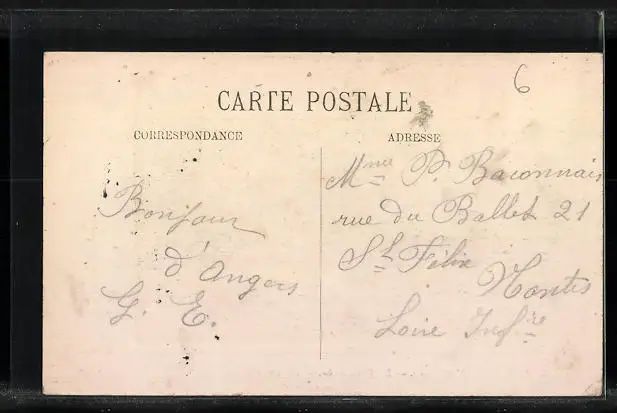 6
CARTE POSTALE
CORRESPONDANCE
ADRESSE
Bonjour
d'Angers
G. E.
Mme P. Baconnais
rue du Ballet 21
St Félix
Nantes
Loire Infre